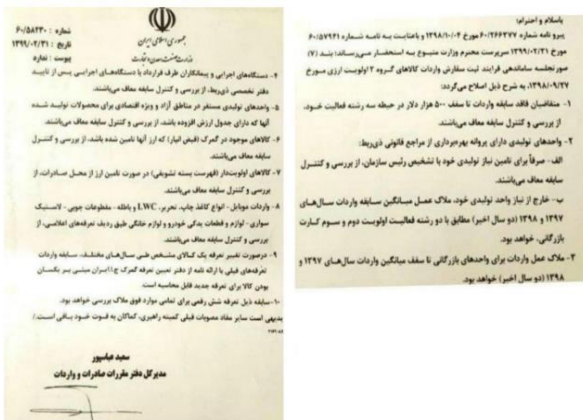 باسلام و احترام:
پیرو نامه شماره ۶۰/۲۶۶۳۷۷ مورخ ۱۳۹۸/۱۰/۰۴ و باعنایت به نامه شماره ۶۰/۵۷۹۴۱
مورخ ۱۳۹۹/۰۲/۳۱ سرپرست محترم وزارت متبوع به استحضار می‌رساند؛ بند (۷)
صورتجلسه ساماندهی فرایند ثبت سفارش واردات کالاهای گروه ۲ اولویت ارزی مورخ
۱۳۹۸/۰۹/۲۷، به شرح ذیل اصلاح می‌گردد:
۱- متقاضیان فاقد سابقه واردات تا سقف ۵۰۰ هزار دلار در حیطه سه رشته فعالیت خود،
از بررسی و کنترل سابقه معاف می‌باشند.
۲- واحدهای تولیدی دارای پروانه بهره‌برداری از مراجع قانونی ذی‌ربط:
الف- صرفاً برای تامین نیاز تولیدی خود با تشخیص رئیس سازمان، از بررسی و کنترل
سابقه معاف می‌باشند.
ب- خارج از نیاز واحد تولیدی خود، ملاک عمل میانگین سابقه واردات سال‌های
۱۳۹۷ و ۱۳۹۸ (دو سال اخیر) مطابق با دو رشته فعالیت اولویت دوم و سوم کارت
بازرگانی، خواهد بود.
۳- ملاک عمل واردات برای واحدهای بازرگانی تا سقف میانگین واردات سال‌های ۱۳۹۷ و
۱۳۹۸ (دو سال اخیر) خواهد بود.
جمهوری اسلامی ایران
وزارت صنعت، معدن و تجارت
شماره : ۶۰/۵۸۲۳۰
تاریخ : ۱۳۹۹/۰۲/۳۱
پیوست : ندارد
۴- دستگاه‌های اجرایی و پیمانکاران طرف قرارداد با دستگاه‌های اجرایی پس از تایید
دفتر تخصصی ذی‌ربط، از بررسی و کنترل سابقه معاف می‌باشند.
۵- واحدهای تولیدی مستقر در مناطق آزاد و ویژه اقتصادی برای محصولات تولید شده
آنها که دارای جدول ارزش افزوده باشد، از بررسی و کنترل سابقه معاف می‌باشند.
۶- کالاهای موجود در گمرک (قبض انبار) که ارز آنها تامین شده باشد، از بررسی و کنترل
سابقه معاف می‌باشند.
۷- کالاهای اولویت‌دار (فهرست بسته تشویقی) در صورت تامین ارز از محل صادرات، از
بررسی و کنترل سابقه معاف می‌باشند.
۸- واردات موبایل - انواع کاغذ چاپ، تحریر، LWC و باطله - مقطوعات چوبی - لاستیک
سواری - لوازم و قطعات یدکی خودرو و لوازم خانگی طبق ردیف تعرفه‌های اعلامی، از
بررسی و کنترل سابقه معاف می‌باشند.
۹- درصورت تغییر تعرفه یک کالای مشخص طی سال‌های مختلف، سابقه واردات
تعرفه‌های قبلی با ارائه نامه از دفتر تعیین تعرفه گمرک ج.ا.ایران مبنی بر یکسان
بودن کالا برای تعرفه جدید قابل محاسبه است.
۱۰- سابقه ذیل تعرفه شش رقمی برای تمامی موارد فوق ملاک بررسی خواهد بود.
بدیهی است سایر مفاد مصوبات قبلی کمیته راهبری، کماکان به قوت خود باقی است./
سعید عباسپور
مدیرکل دفتر مقررات صادرات و واردات